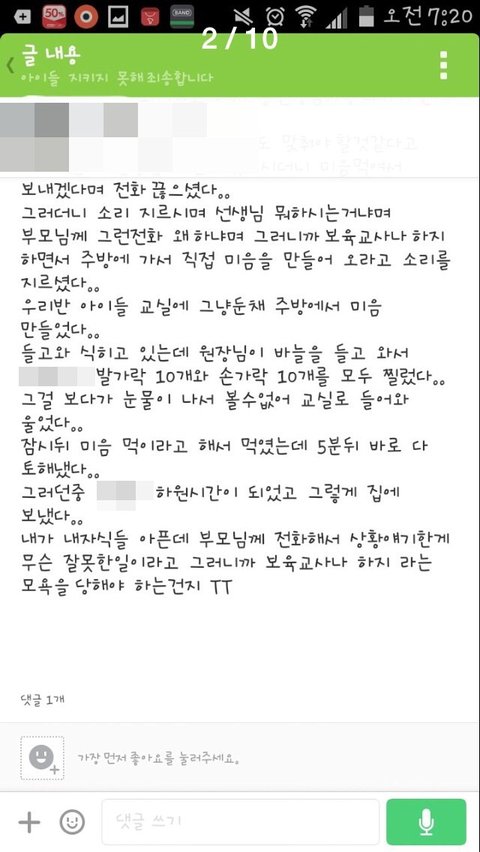 50%
BAND
오전 7:20
2 / 10
글 내용
아이들 지키지 못해 죄송합니다
도 맞춰야 할것같다고
보내겠다며 전화 끊으셨다。。
그러더니 소리 지르시며 선생님 뭐하시는거냐며
부모님께 그런전화 왜 하냐며 그러니까 보육교사나 하지
하면서 주방에 가서 직접 미음을 만들어 오라고 소리를
지르셨다。。
우리반 아이들 교실에 그냥둔채 주방에서 미음
만들었다。。
들고와 식히고 있는데 원장님이 바늘을 들고 와서
발가락 10개와 손가락 10개를 모두 찔렀다。。
그걸 보다가 눈물이 나서 볼수없어 교실로 들어와
울었다。。
잠시뒤 미음 먹이라고 해서 먹였는데 5분뒤 바로 다
토해냈다。。
그러던중 하원시간이 되었고 그렇게 집에
보냈다。。
내가 내자식들 아픈데 부모님께 전화해서 상황얘기한게
무슨 잘못한일이라고 그러니까 보육교사나 하지 라는
모욕을 당해야 하는건지 TT
댓글 1개
가장 먼저 좋아요를 눌러주세요。
댓글 쓰기